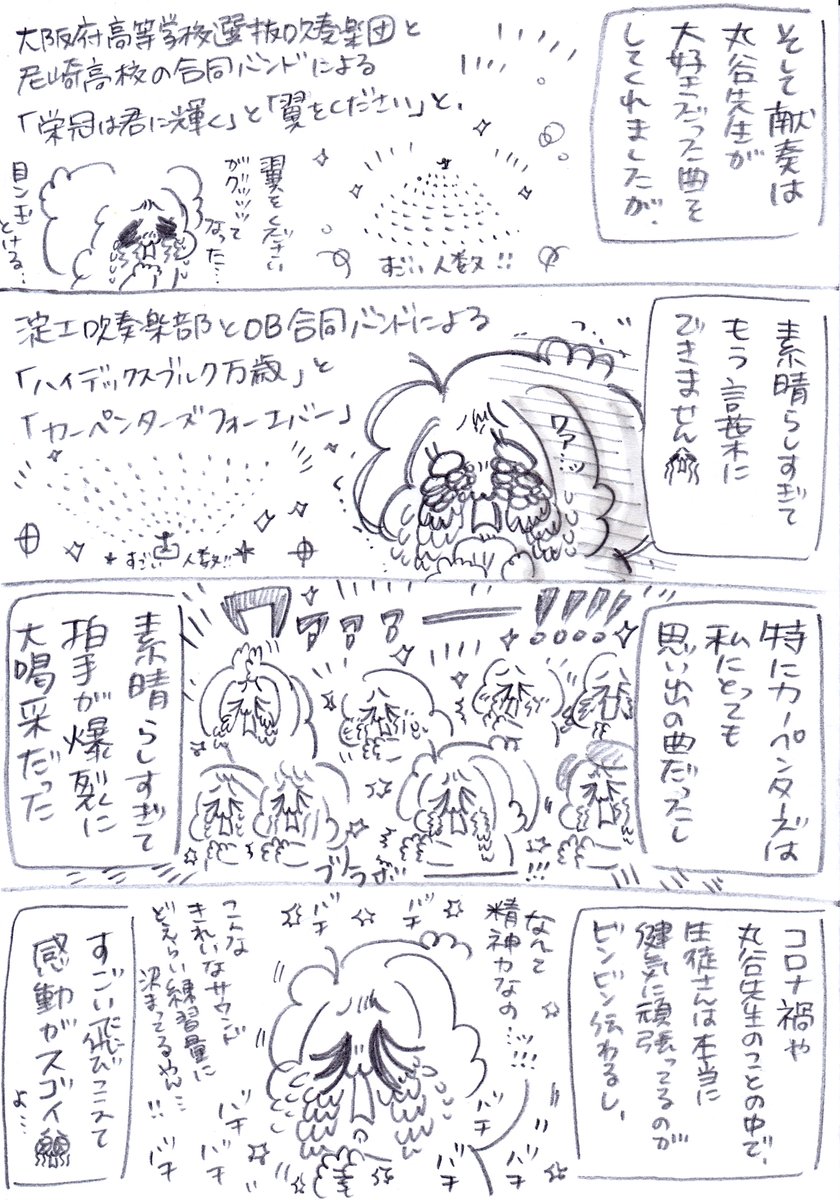 そして献奏は
丸谷先生が
大好きだった曲を
してくれましたが、
大阪府高等学校選抜吹奏楽団と
尼崎高校の合同バンドによる
「栄冠は君に輝く」と「翼をください」と、
すごい人数!!
翼をください
がグッッッて
なった…
目ン玉
とける…
素晴らしすぎて
もう言葉に
できません
ワァ…ッ
淀工吹奏楽部とOB合同バンドによる
「ハイデックスブルク万歳」と
「カーペンターズフォーエバー」
すごい人数!!
特にカーペンターズは
私にとっても
思い出の曲だったし
ワァァァーー!!!!
ブラボー!!!
素晴らしすぎて
拍手が爆裂に
大喝采だった
コロナ禍や
丸谷先生のことの中で、
生徒さんは本当に
健気に頑張ってるのが
ビンビン伝わるし、
なんて
精神力なの…ッ!!!
バチ
バチ
バチ
バチ
バチ
バチ
バチ
バチ
こんな
きれいなサウンド
どえらい練習量に
決まってるやん…!!
すごい飛びこえて
感動がスゴイ
よ…